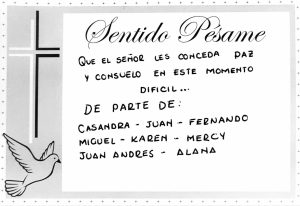 Sentido Pésame
QUE EL SEÑOR LES CONCEDA PAZ
Y CONSUELO EN ESTE MOMENTO
DIFICIL...
DE PARTE DE:
CASANDRA - JUAN - FERNANDO
MIGUEL - KAREN - MERCY
JUAN ANDRES - ALANA